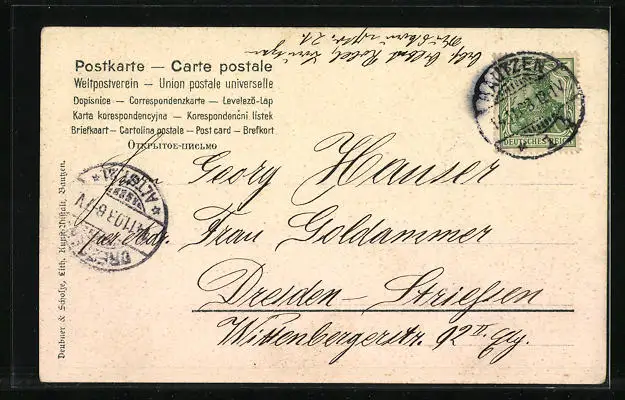 Postkarte — Carte postale
Weltpostverein — Union postale universelle
Dopisnice — Correspondenzkarte — Levelező-Lap
Karta korespondencyjna — Korespondenční lístek
Briefkaart — Cartolina postale — Post card — Brefkort
Открытое-письмо
BAUTZEN
DEUTSCHES REICH
Georg Hauser
Frau Goldammer
Dresden-Striesen
Wittenbergerstr. 92 II.
ALTST.
DRESDEN
Deubner & Scholze, Lith. Kunst-Anstalt, Bautzen.